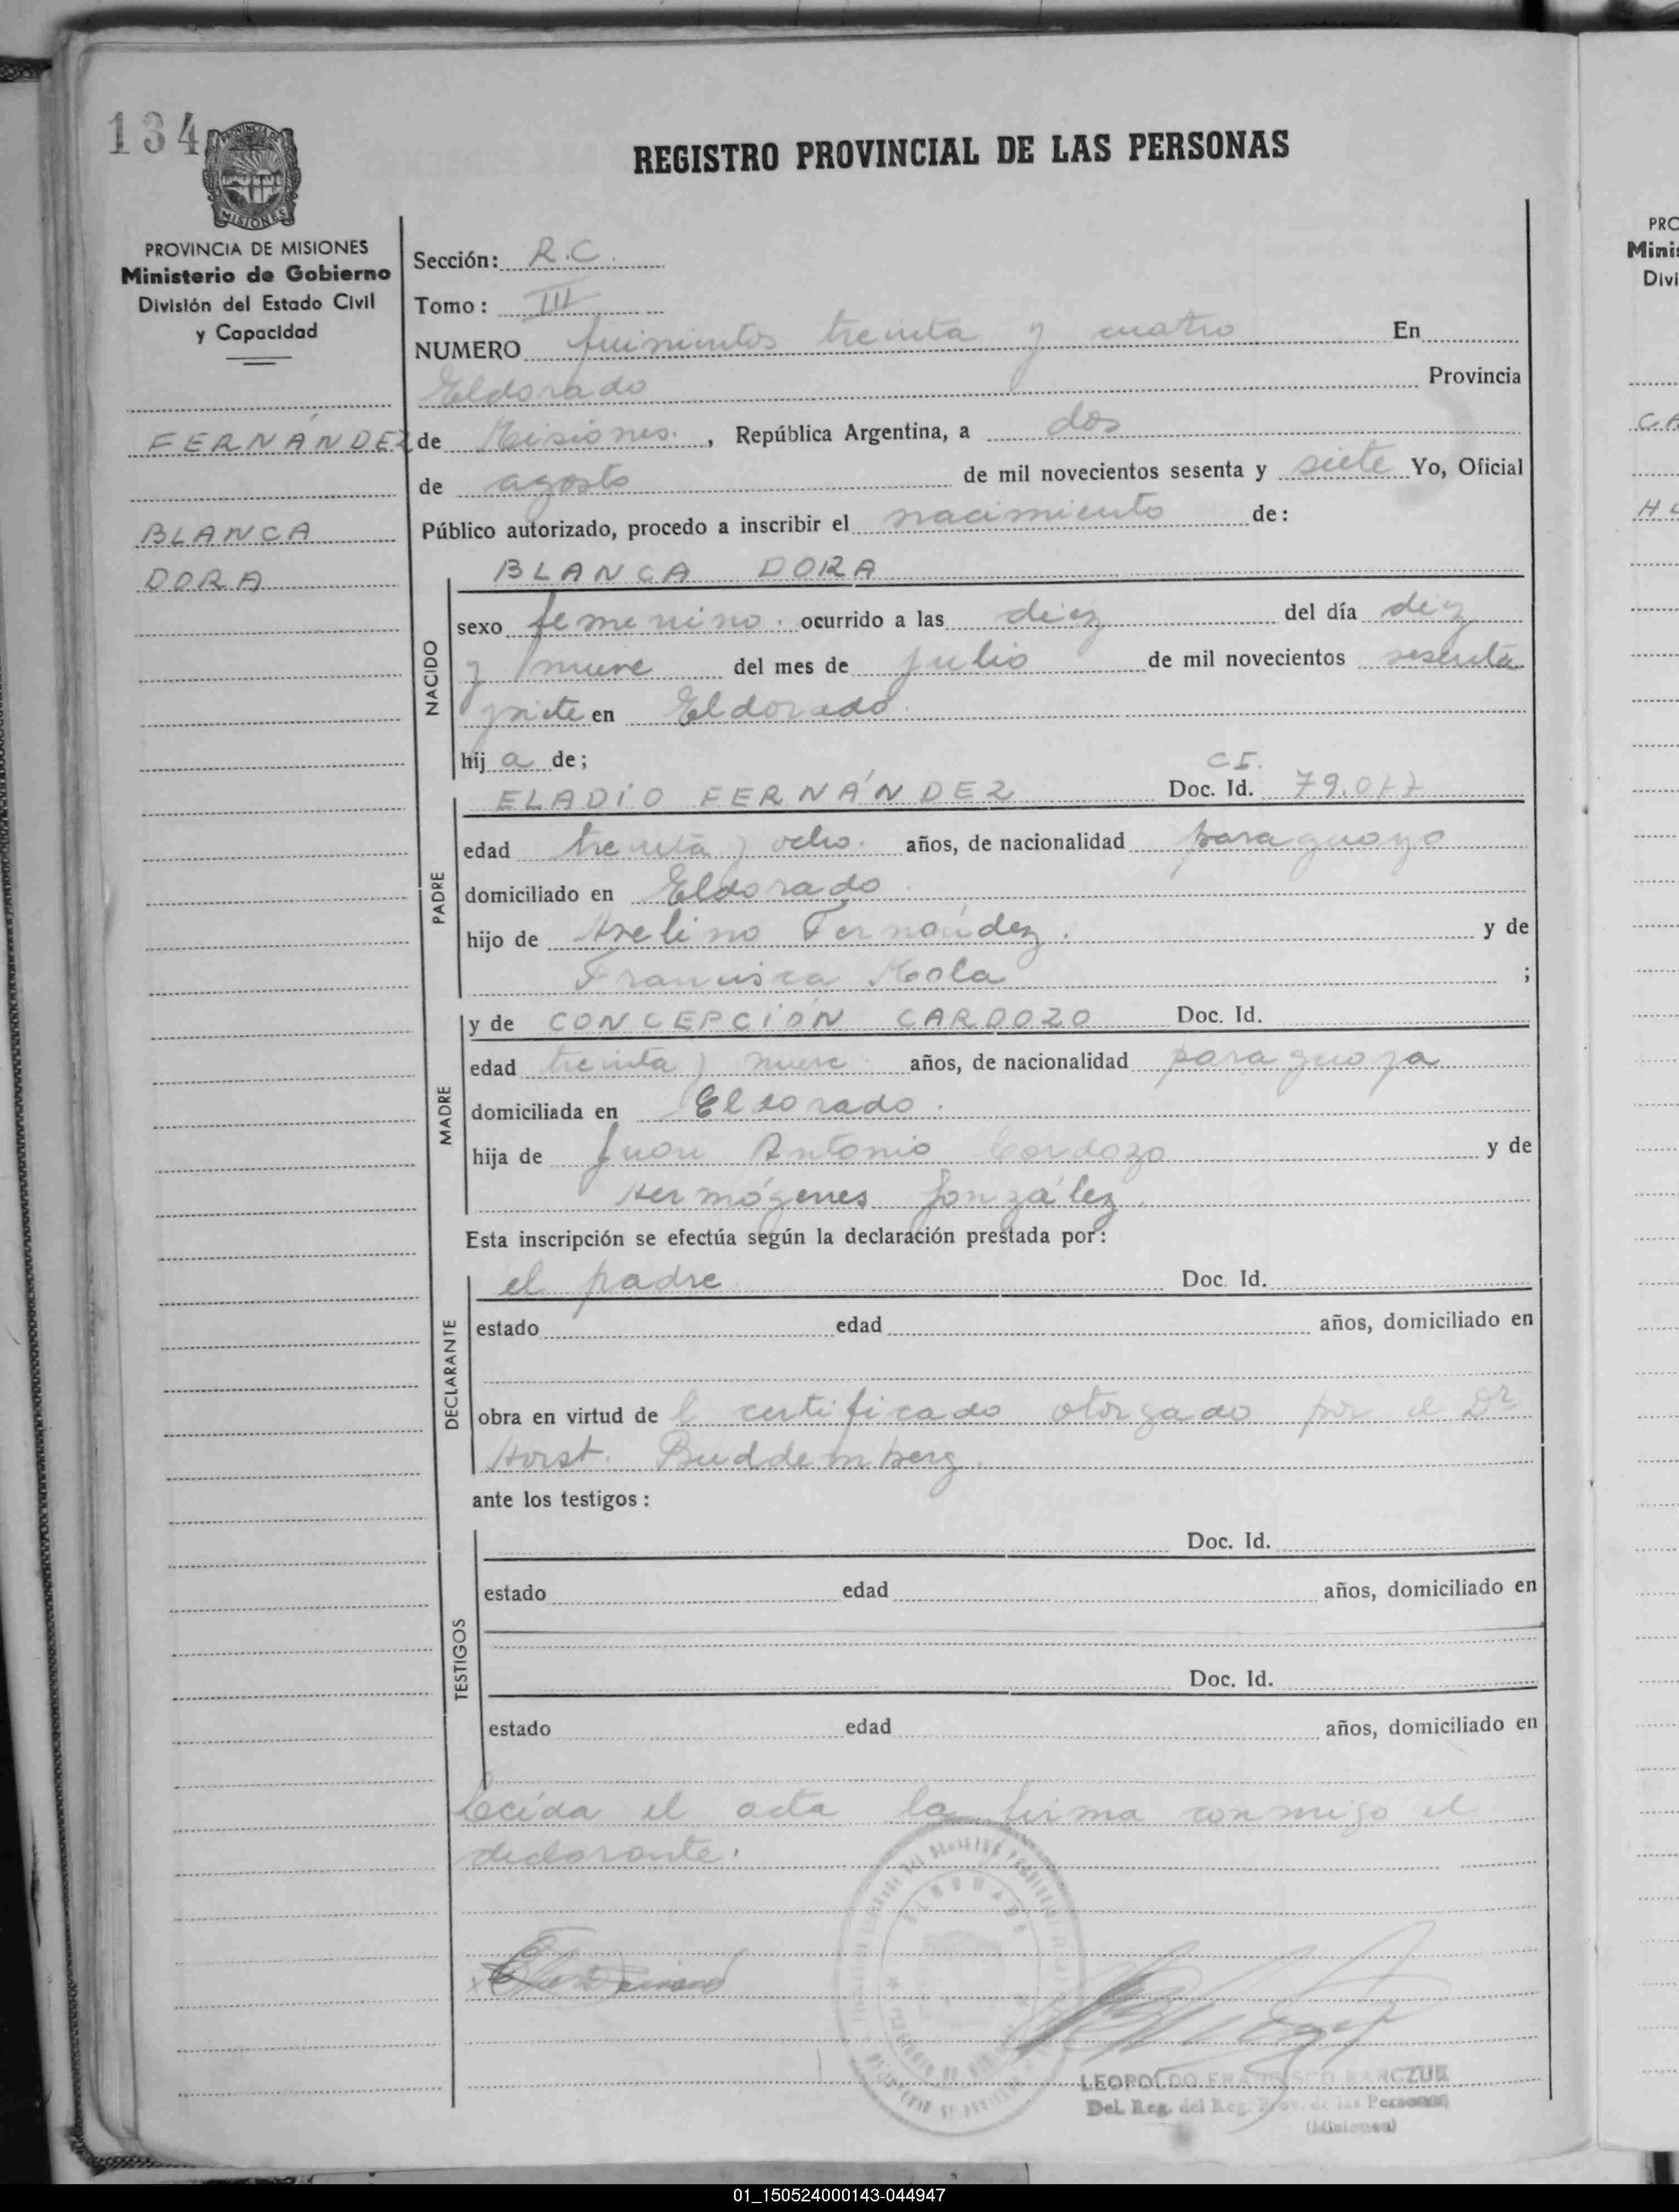 134
PROVINCIA DE
MISIONES
REGISTRO PROVINCIAL DE LAS PERSONAS
PROVINCIA DE MISIONES
Ministerio de Gobierno
División del Estado Civil
y Capacidad
FERNÁNDEZ
BLANCA
DORA
Sección: R.C.
Tomo: III
NUMERO quinientos treinta y cuatro En
Eldorado Provincia
de Misiones. , República Argentina, a dos
de agosto de mil novecientos sesenta y siete Yo, Oficial
Público autorizado, procedo a inscribir el nacimiento de:
BLANCA DORA
NACIDO
sexo femenino. ocurrido a las diez del día diez
y nueve del mes de julio de mil novecientos sesenta
y siete en Eldorado.
hij a de;
C.I.
PADRE
ELADIO FERNÁNDEZ Doc. Id. 79.077
edad treinta y ocho. años, de nacionalidad paraguayo
domiciliado en Eldorado.
hijo de Avelino Fernández. y de
Francisca Mola ;
MADRE
y de CONCEPCIÓN CARDOZO Doc. Id.
edad treinta y nueve. años, de nacionalidad paraguaya
domiciliada en Eldorado.
hija de Juan Antonio Cardozo y de
Hermógenes González.
Esta inscripción se efectúa según la declaración prestada por:
DECLARANTE
el padre Doc. Id.
estado edad años, domiciliado en
obra en virtud de l certificado otorgado por el Dr
Horst. Buddemberg.
ante los testigos:
TESTIGOS
Doc. Id.
estado edad años, domiciliado en
Doc. Id.
estado edad años, domiciliado en
Leída el acta la firma conmigo el
declarante.
LEOPOLDO FRANCISCO
Del. Reg. del Reg. Prov. de las Personas
(Misiones)
PRO
Minis
Divi
CA
01_150524000143-044947